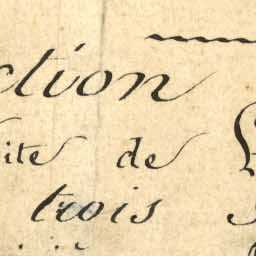 ction
ite de
trois